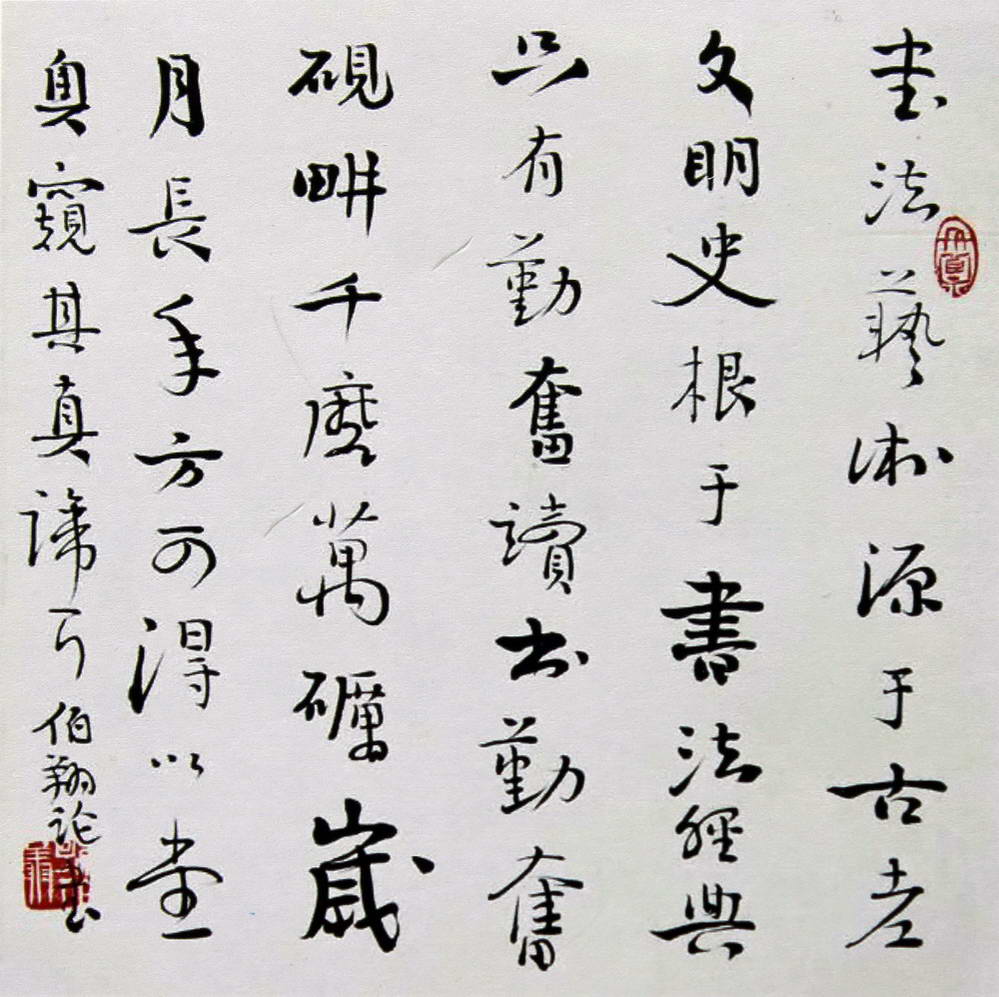 书法藝術源于古老
文明史根于書法經典
只有勤奮讀书勤奮
硯畊千磨萬礪歲
月長年方可得以堂
奥窺其真諦
伯翔論书